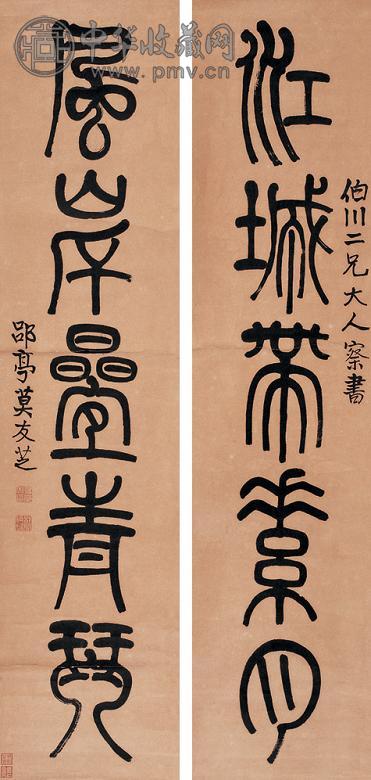 中华收藏网
www.pmv.cn
伯川二兄大人察書
江城帶素月
風岸疊青琴
郘亭莫友芝